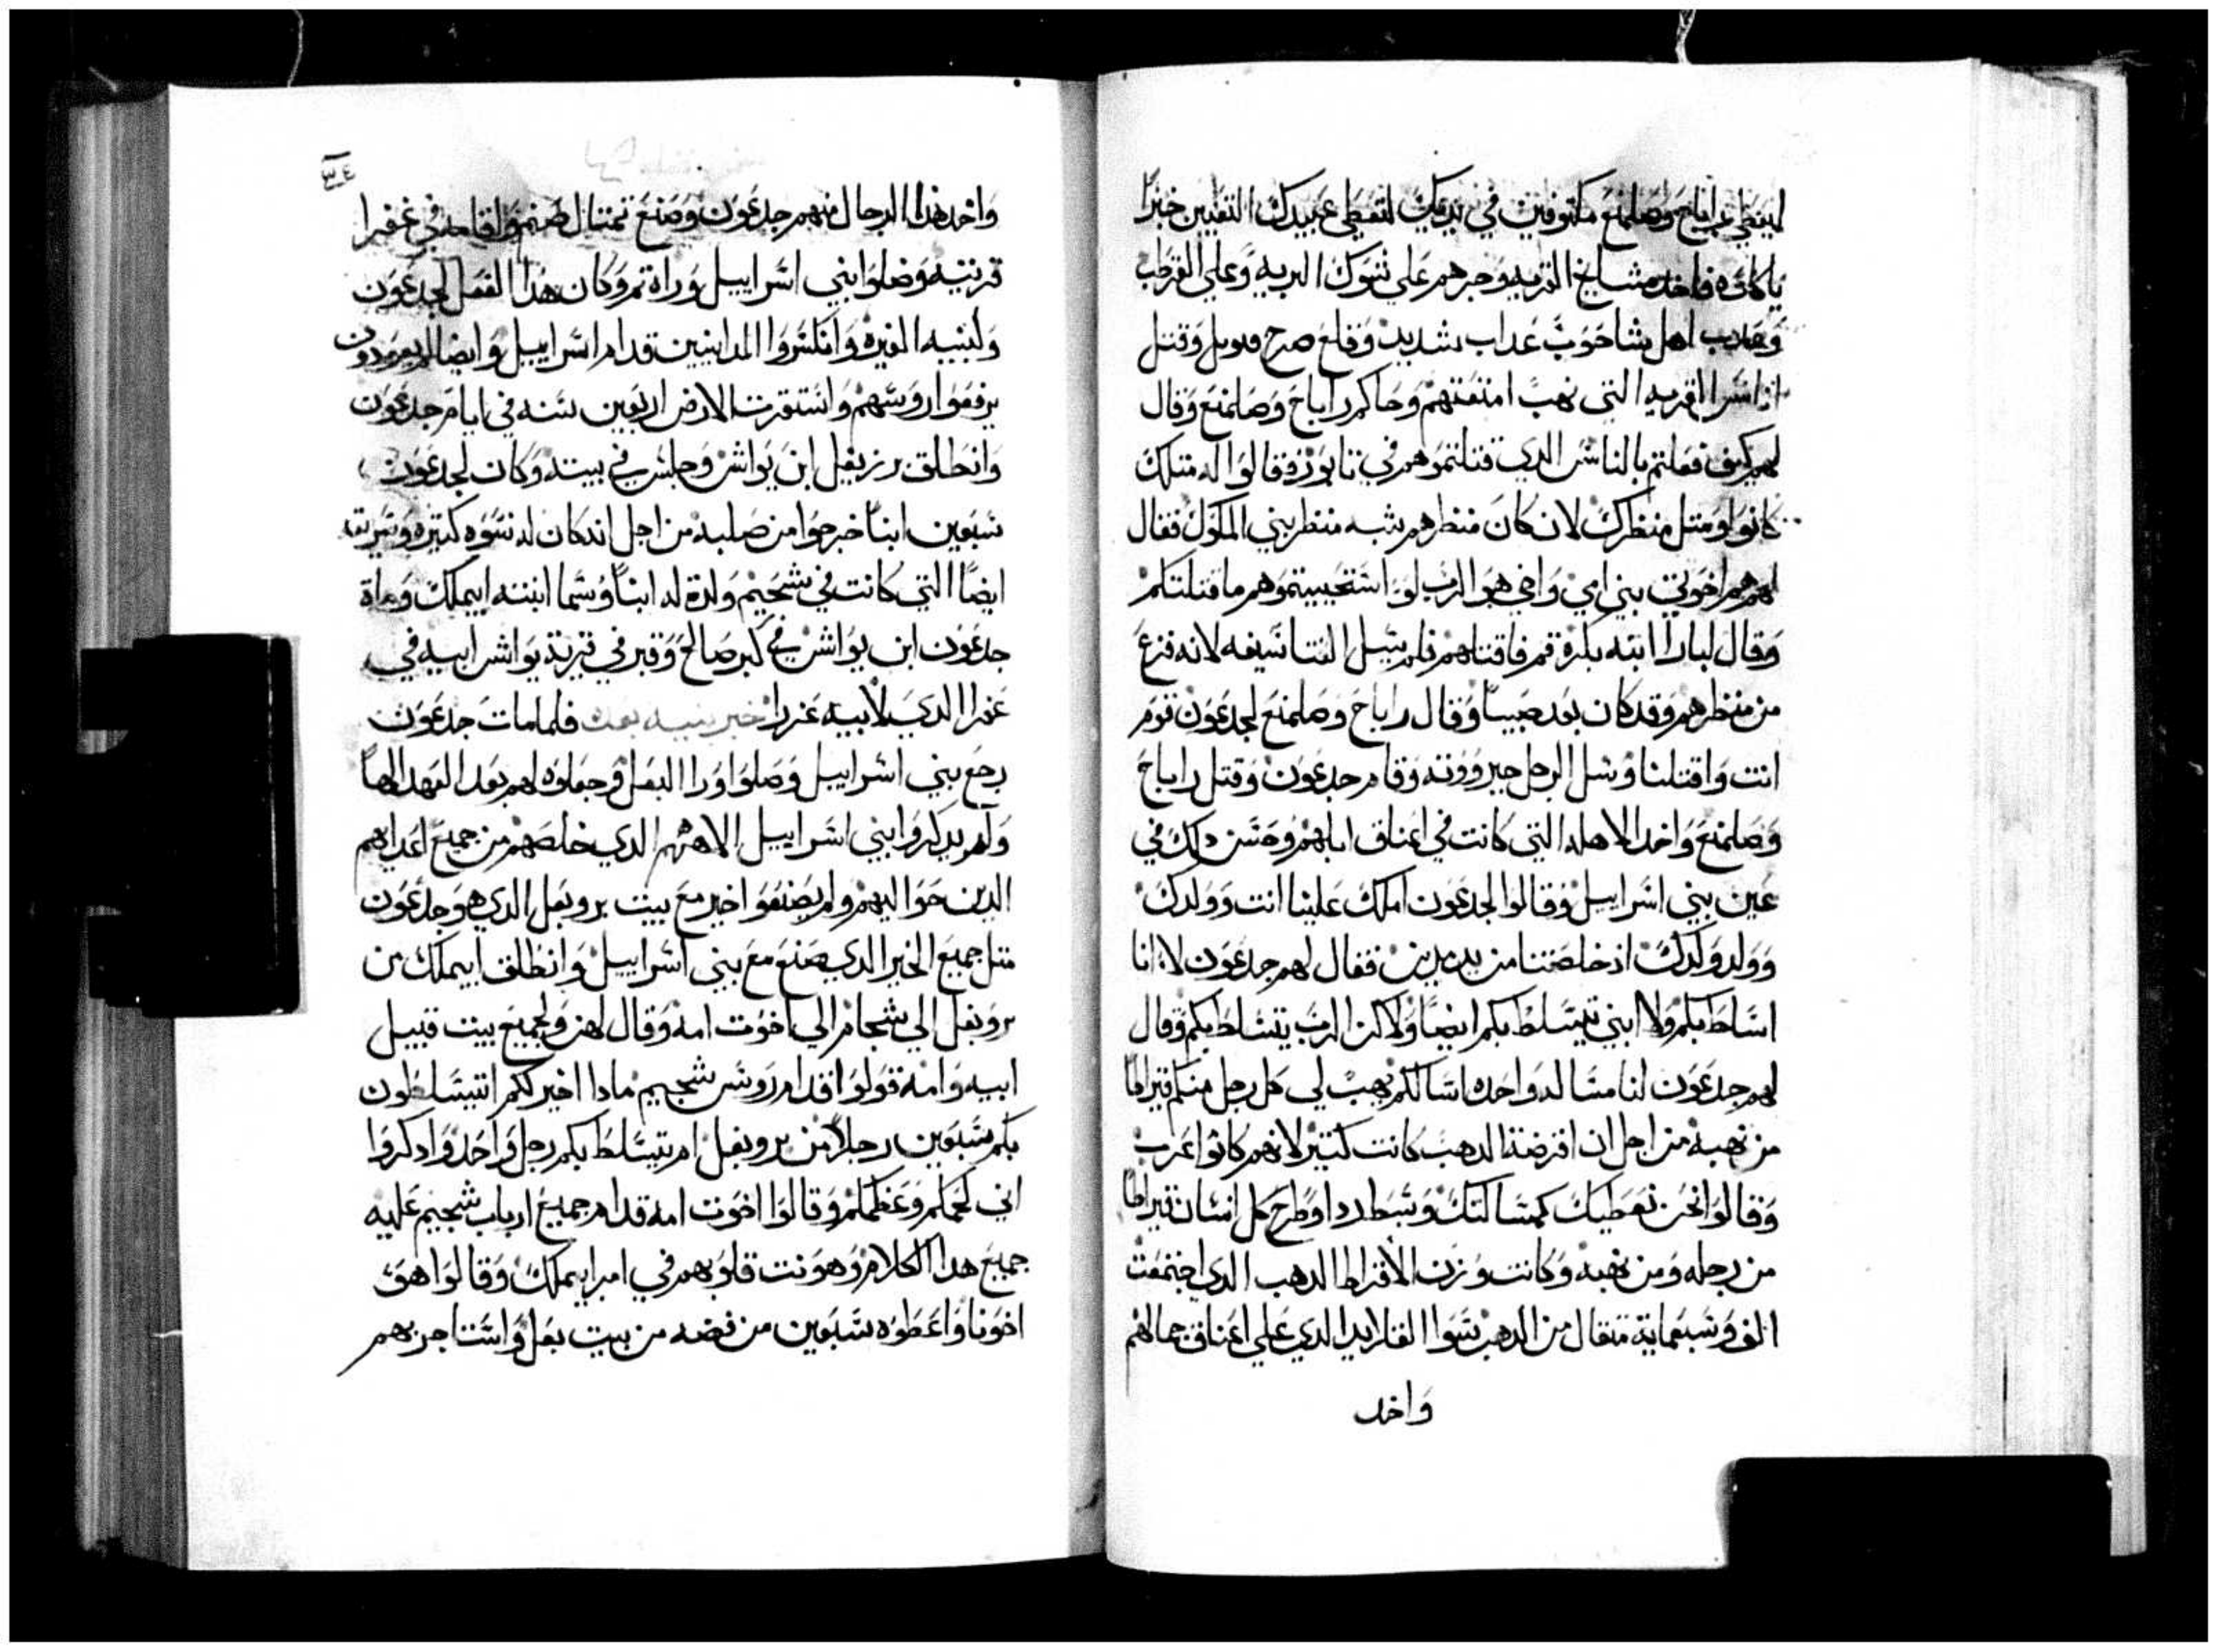 لينظر راباح وصلمنع مكتوفين في يديك لتعطي عبيدك التعبين خبزا
ياكلوه فاخد مشايخ القريه وجرهم علي شوك البريه وعلي القرطب
وعدب اهل شاحوب عداب شديد وقلع صرح فنويل وقتل
القريه التي نهب امتعتهم وحاكم راباح وصلمنع وقال
لهم كيف فعلتم بالناس الدي قتلتموهم في تابور فقالوا له متلك
كانوا ومتل منظرك لان كان منظرهم شبه منظر بني الملوك فقال
لهم هم اخوتي بني امي واني هو الرب لو استحييتموهم ما قتلتكم
وقال لباراا ابنه بكره قم فاقتلهم فلم يسل الفتا سيفه لانه فزع
من منظرهم وقد كان بعد صبيا وقال راباح وصلمنع لجدعون قوم
انت واقتلنا وسل الرجل جبرووته وقام جدعون وقتل راباح
وصلمنع واخد الاهله التي كانت في اعناق ابلهم وحسن دلك في
عين بني اسراييل وقالوا لجدعون املك علينا انت وولدك
وولد ولدك اد خلصتنا من يد مدين فقال لهم جدعون لا انا
اسلط بكم ولا ابني يتسلط بكم ايضا ولاكن الرب يتسلط بكم وقال
لهم جدعون لنا مساله واحده اسالكم يهب لي كل رجل منكم قيراطا
من نهبه من اجل ان اقرضة الدهب كانت كتير لانهم كانوا عرب
وقالوا نحن نعطيك كمسالتك وبسط ردا وطرح كل انسان قيراطا
من رجله ومن نهبه وكانت وزن الاقراط الدهب الدي اجتمعت
الف وسبعماية متقال من الدهب سوا القلايد الدي علي اعناق جمالهم
واخد
٣٠٤
واخد هدا الرجال منهم جدعون وصنع تمتال صنم واقامه في غفيرا
قريته وضلوا بني اسراييل وراه تم وكان هدا الفعل لجدعون
ولبنيه الغيره وانكسروا المدانيين قدام اسراييل وايضا لم يعودون
يرفعوا روسهم واستقرت الارض اربعين سنه في ايام جدعون
وانطلق يربعل ابن يواش وجلس في بيته وكان لجدعون
سبعين ابنا خرجوا من صلبه من اجل انه كان له نسوه كتيره وسريته
ايضا التي كانت في شجيم ولدة له ابنا وسما ابنه ابيملك ومات
جدعون ابن يواش في كبر صالح وقبر في قرية يواش ابيه في
عفرا الدي لابيه عزرا خبر بنيه بعده فلما مات جدعون
رجع بني اسراييل وصلوا ورا البعل وجعلوه لهم بعد العهد الها
ولم يدكروا بني اسراييل الاههم الدي خلصهم من جميع اعداهم
الدين حواليهم ولم يصنعوا خير مع بيت بروبعل الدي هو جدعون
متل جميع الخير الدي صنع مع بني اسراييل وانطلق ابيملك بن
بروبعل الي شجام الي اخوت امه وقال لهم ولجميع بيت قبيل
ابيه وامه قولوا قدام روس شجيم مادا اخير لكم اتتسلطون
بكم سبعين رجلا من بروبعل ام يتسلط بكم رجل واحد وادكروا
اني لحمكم وعظمكم وقالوا اخوت امه قدام جميع ارباب شجيم عليه
جميع هدا الكلام وهونت قلوبهم في امر ابيملك وقالوا هو
اخونا واعطوه سبعين من فضه من بيت بعل واستاجر بهم